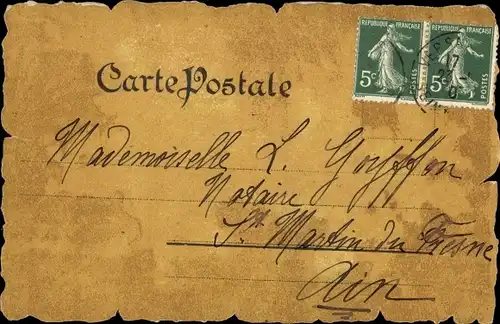 REPUBLIQUE FRANÇAISE REPUBLIQUE FRANÇAISE
5c POSTES 5c POSTES
17
Carte Postale
Mademoiselle L. Goyffon
Notaire
St Martin du Fresne
Ain